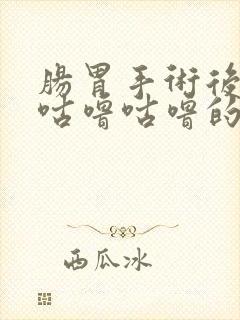 腸胃手術後
咕嚕咕嚕的
西瓜冰